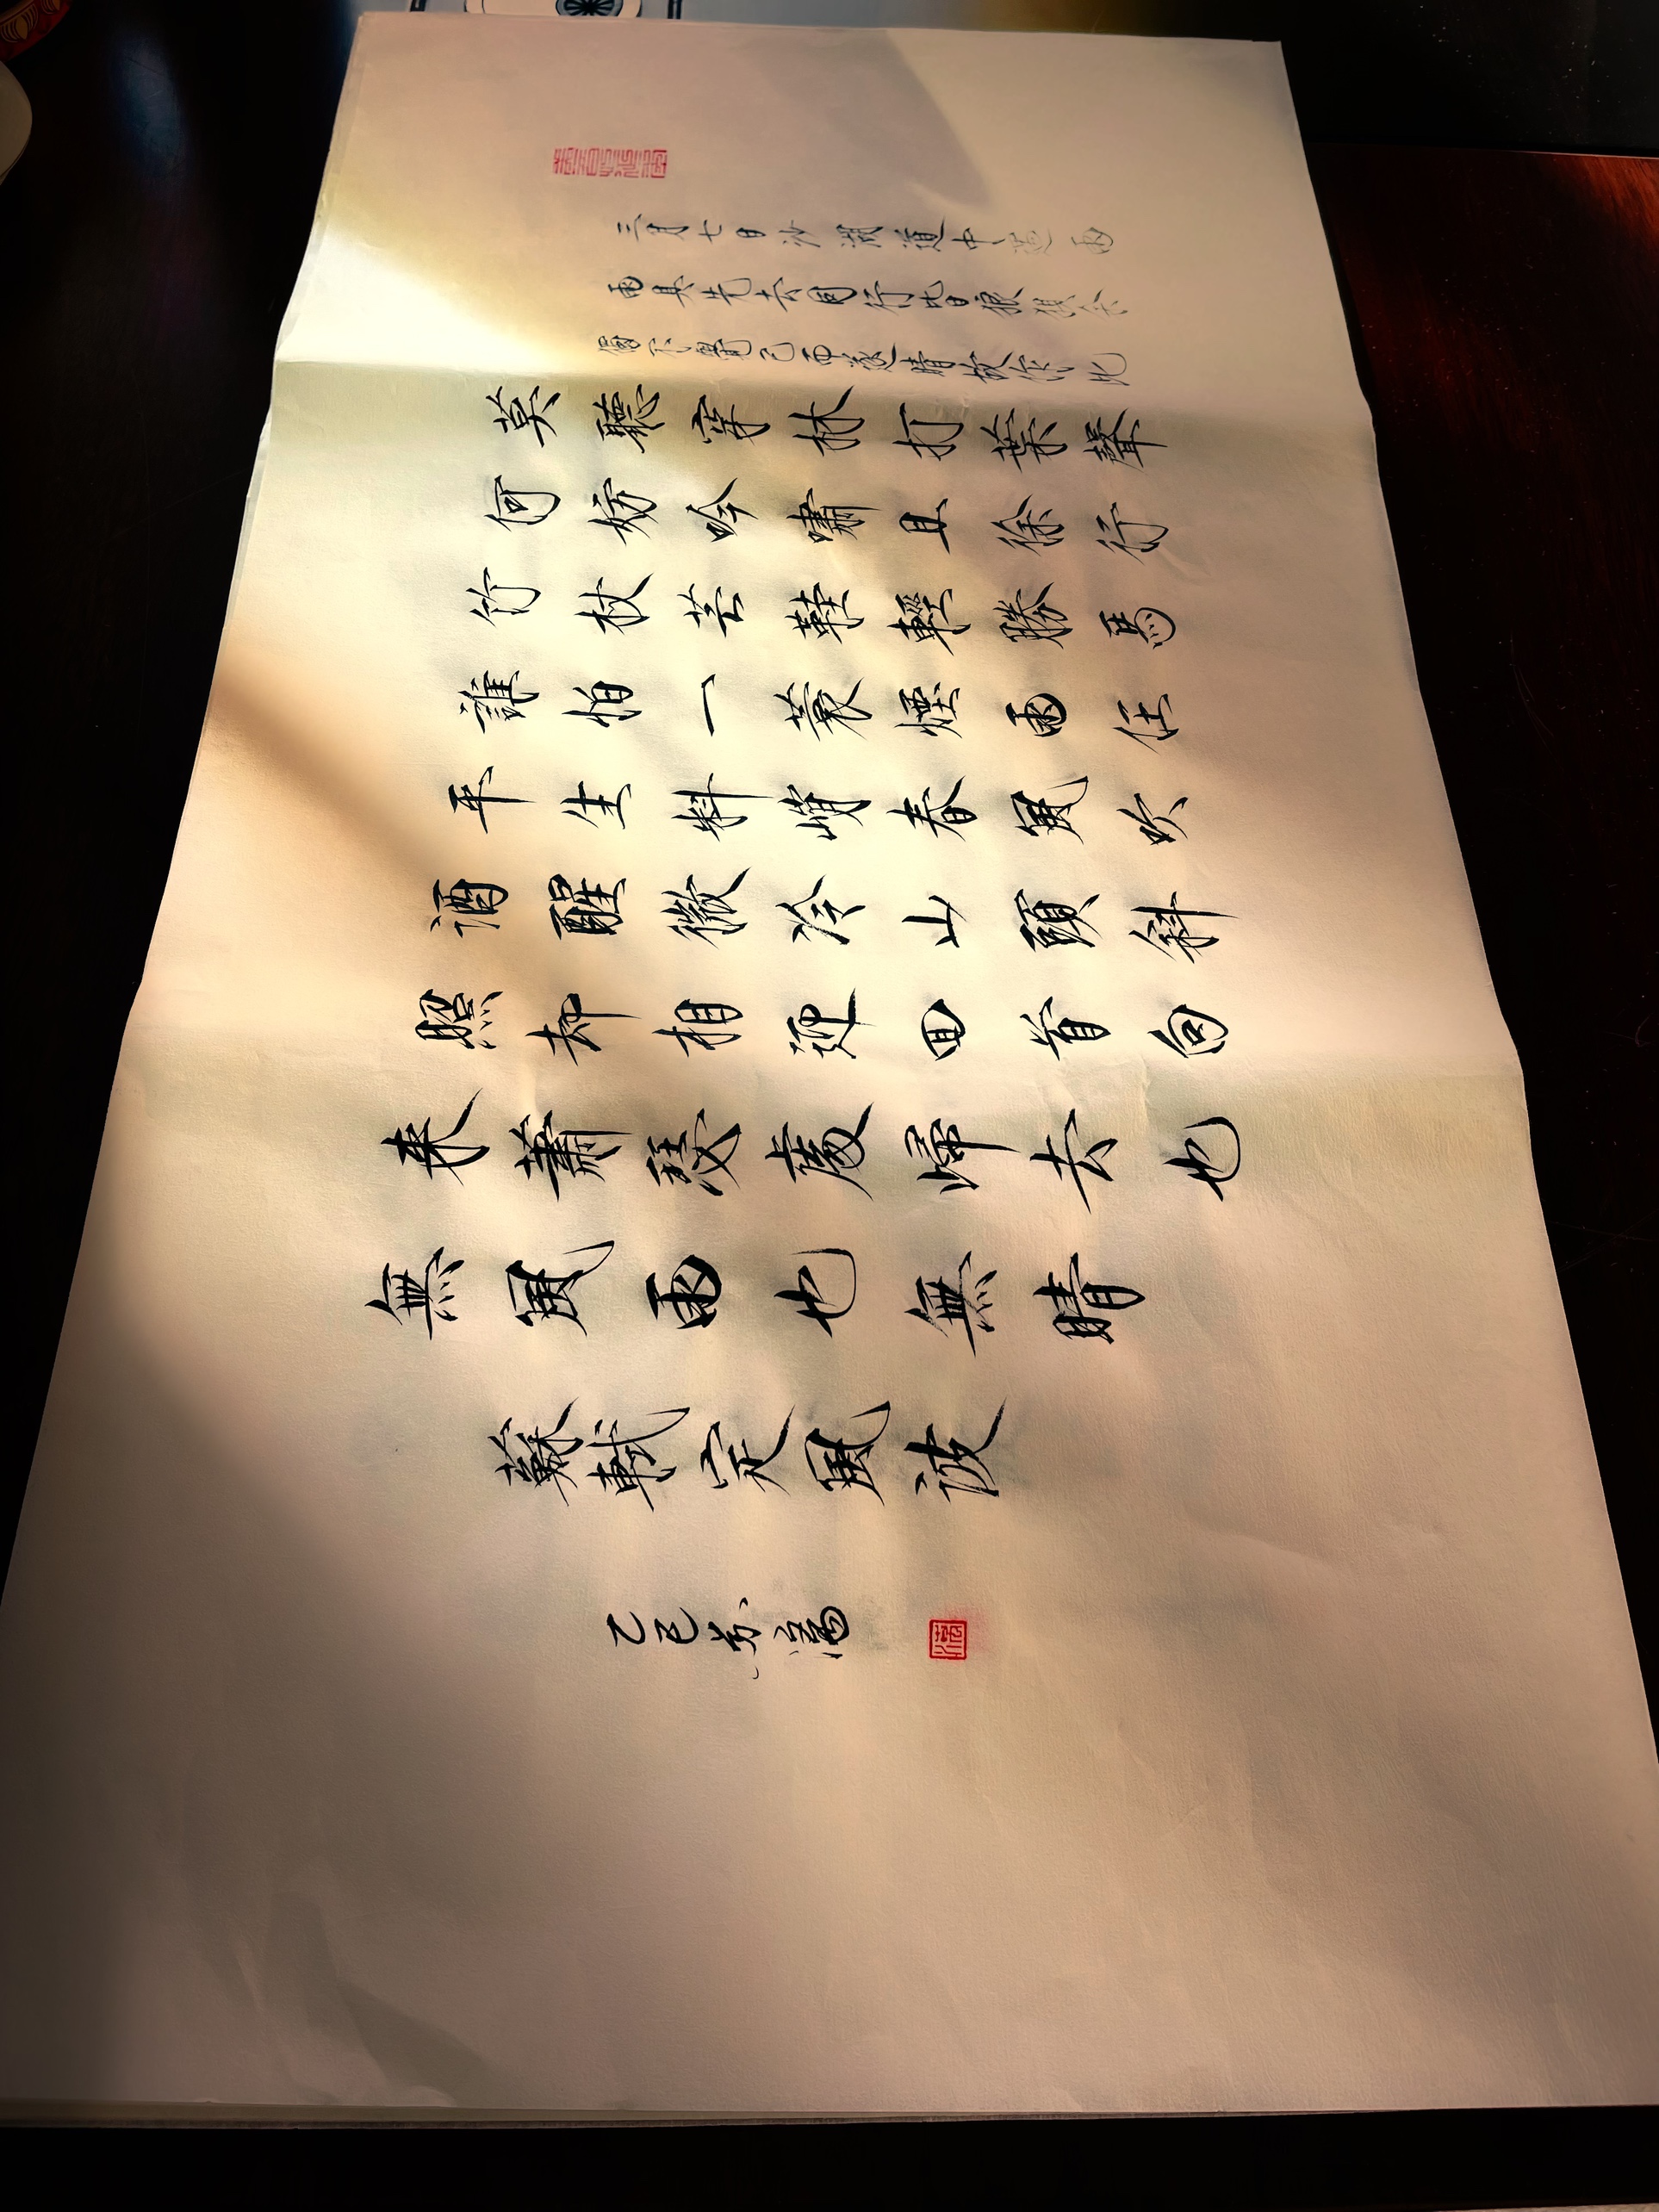 三月七日沙湖道中遇雨
雨具先去同行皆狼狽余
獨不覺已而遂晴故作此
莫聽穿林打葉聲
何妨吟嘯且徐行
竹杖芒鞋輕勝馬
誰怕一蓑煙雨任
平生料峭春風吹
酒醒微冷山頭斜
照却相迎回首向
來蕭瑟處歸去也
無風雨也無晴
蘇軾定風波
乙巳